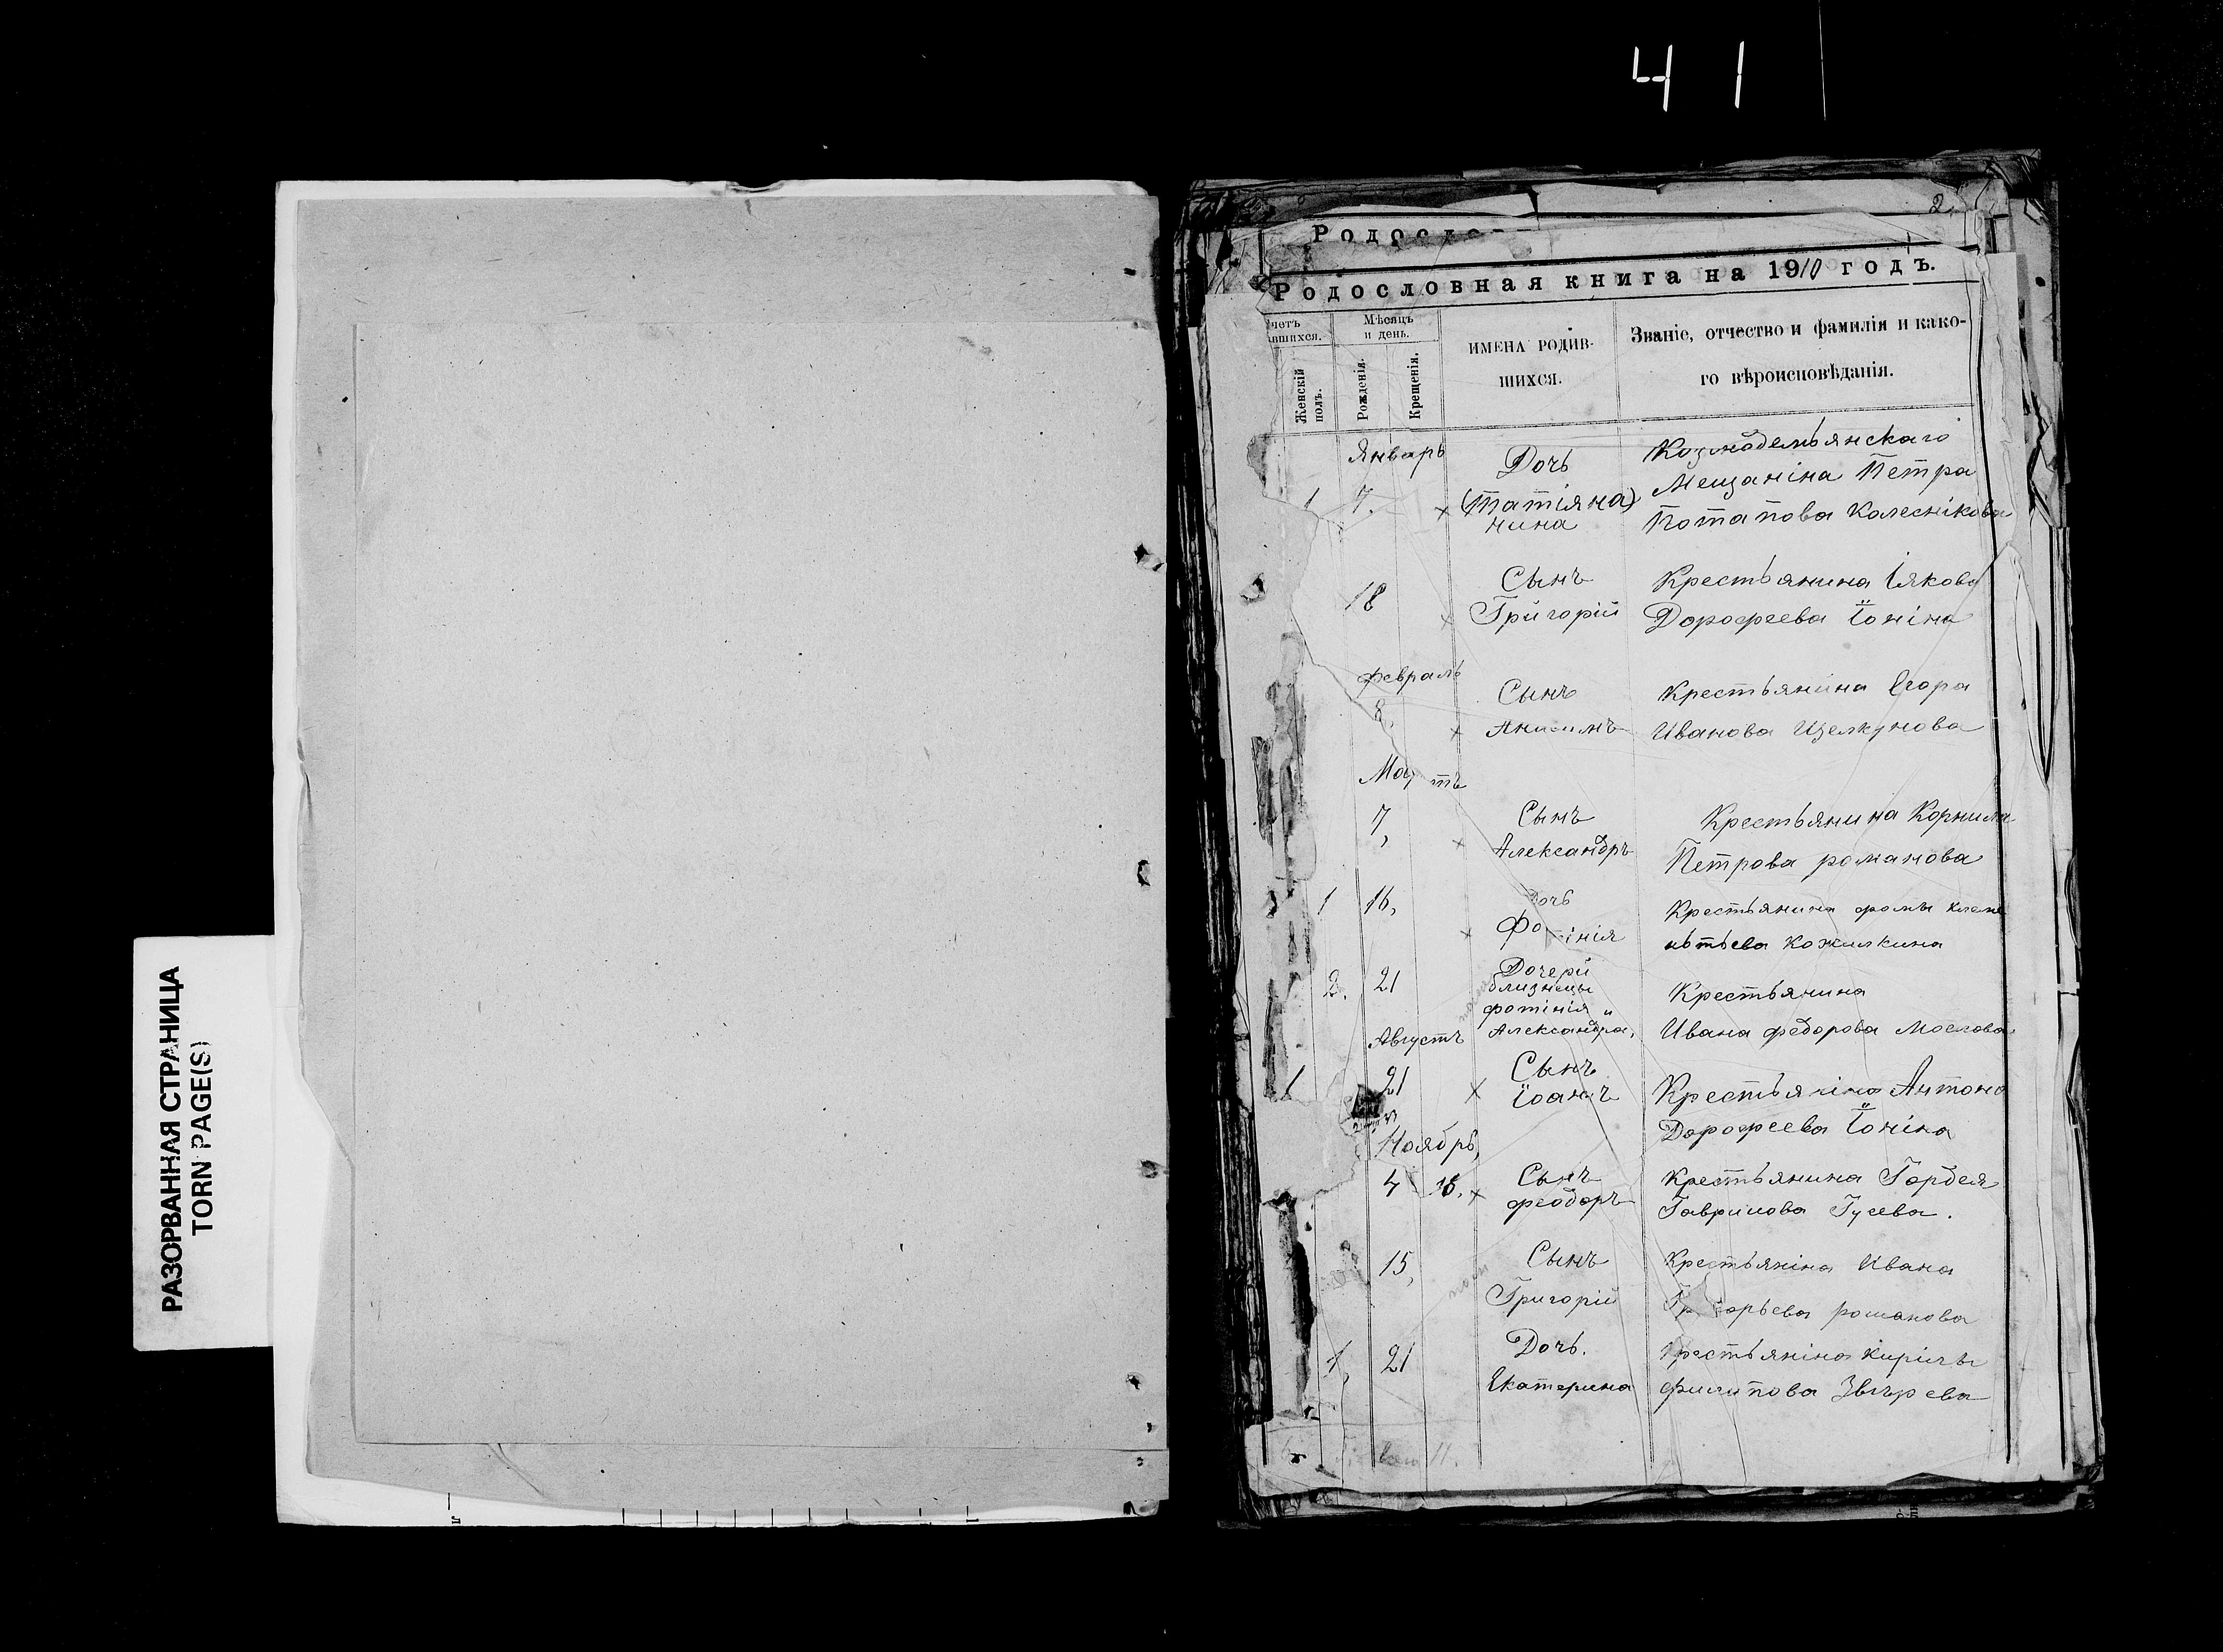 41
РАЗОРВАННАЯ СТРАНИЦА
TORN PAGE(S)
2.
Родослов
Родословная книга на 1910 годъ.
четъ
вшихся.
Женскій
полъ.
Мѣсяцъ
и день.
Рожденія.
Крещенія.
ИМЕНА РОДИВ-
ШИХСЯ.
Званіе, отчество и фамилія и како-
го вѣроисповѣданія.
Январь
1 7. × Дочь
(Татіяна)
нина
Козмодемьянскаго
Мещаніна Петра
Потапова Калеснікова
18 × Сынъ
Григорій
Крестьянина Іякова
Дорофеева Іоніна
Февраль
8, × Сынъ
Анисимъ
Крестьянина Егора
Иванова Щелкунова
Мартъ
7, × Сынъ
Александръ
Крестьянина Корнила
Петрова романова
1 16, × Дочь
Фотінія
Крестьянина фомы клеме
нтьева
2. 21 Дочери
близнецы
фотінія и
Александра,
Крестьянина
Ивана федорова
Августъ
1 21 × Сынъ
Іоанъ
Крестьяніна Антона
Дорофеева Іоніна
Ноябрь,
4 × Сынъ
феодоръ
Крестьянина Гордея
Гаврилова Гусева.
15, Сынъ
Григорій
Крестьяніна Ивана
Григорьева романова
1, 21 Дочь.
Екатерина
Крестьяніна Кирілы
филипова Звѣрева